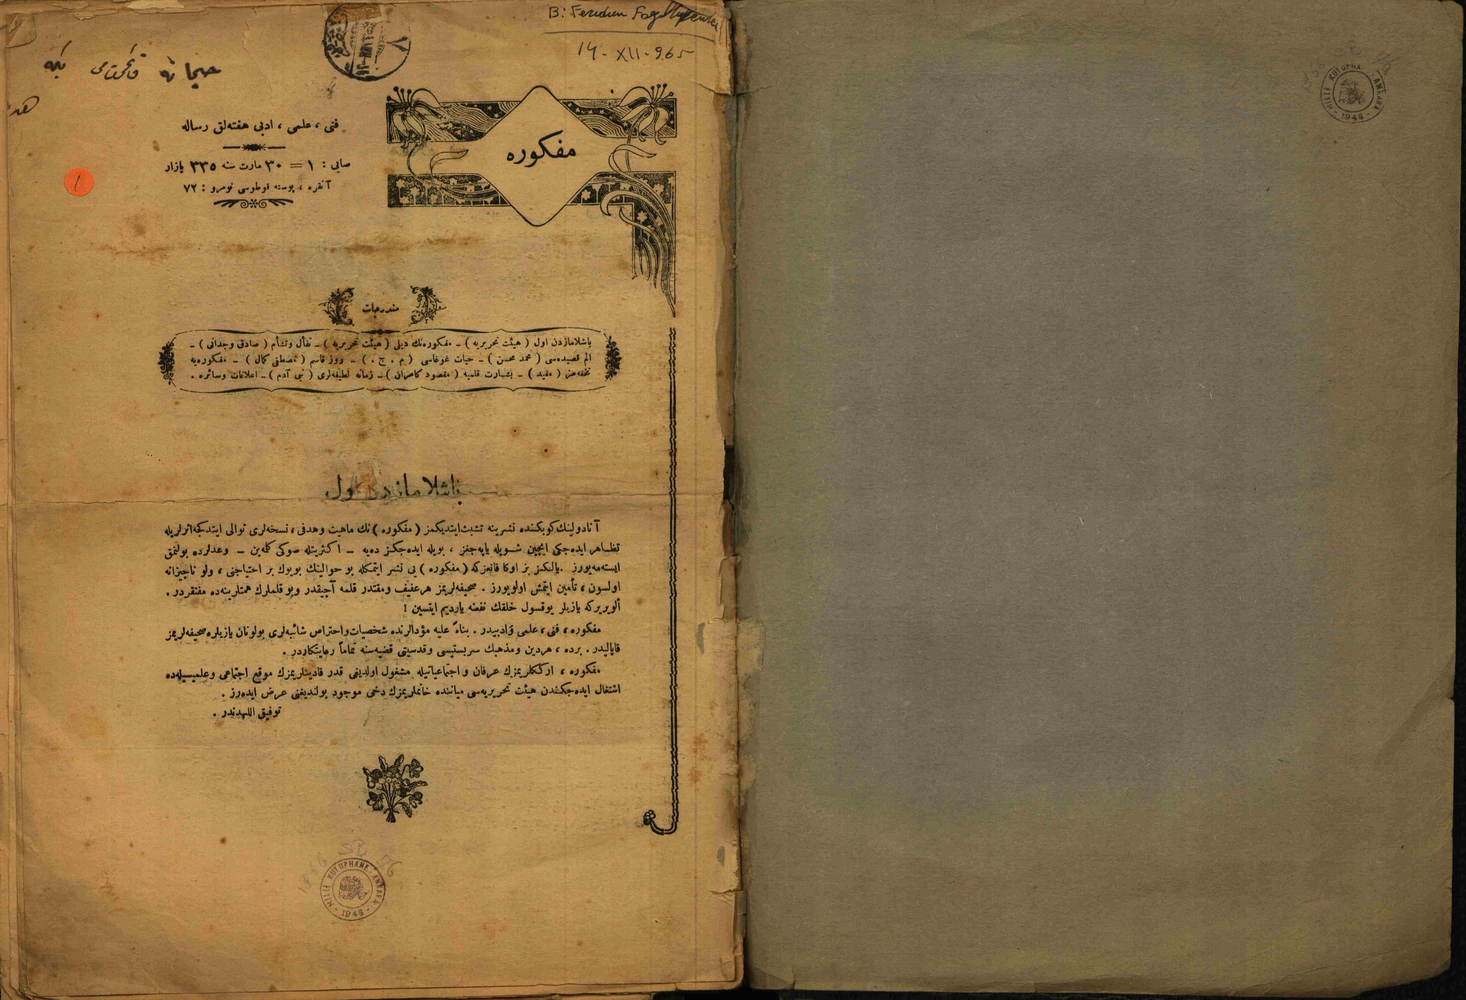 B. Feridun
14-XII-965
حیمانه قائممقامی بكه
فنی ، علمی ، ادبی هفته‌لق رساله
صایی : ١ = ٣٠ مارت سنه ٣٣٥ بازار
آنقره ، پوسته قوطوسی نومرو : ٧٢
مفكوره
مندرجات
باشلامازدن اول ( هیئت تحریریه ) ـ مفكوره‌نك دیلی ( هیئت تحریریه ) ـ تفأل وتشأم ( صادق وجدانی ) ـ
الم قصیده‌سی ( محمد محسن ) ـ حیات غوغاسی ( م . ج . ) ـ روز قاسم ( مصطفی كمال ) ـ مفكوره‌یه
تحفه‌مز ( مفید ) ـ بشارت قلبیه ( مقصود كامران ) ـ زمانه لطیفه‌لری ( بنی آدم ) ـ اعلانات وسائره .
باشلامازدن اول
آنادولینك كوبكنده نشرینه تشبث ایتدیكمز ( مفكوره ) نك ماهیت وهدفی ، نسخه‌لری توالی ایتدكجه اثرلریله
تظاهر ایده‌جكی ایچین شویله یاپه‌جغز ، بویله ایده‌جكز دییه ـ اكثریتله صوكی كلمه‌ین ـ وعدلرده بولنمق
ایسته‌میورز . یالكز بز اوكا قانعزكه ( مفكوره ) یی نشر ایتمكله بو حوالینك بویوك بر احتیاجنی ، ولو ناچیزانه
اولسون ، تأمین ایتمش اولویورز . صحیفه‌لریمز هر عفیف ومقتدر قلمه آچیقدر وبو قلملرك همتلرینه‌ده مفتقردر .
ألویریركه یازیلر یوقسول خلقك نفعنه یاردیم ایتسین !
مفكوره ، فنی ، علمی وادبیدر . بناءً علیه مؤدالرنده شخصیات واحتراص شائبه‌لری بولونان یازیلره صحیفه‌لریمز
قاپالیدر . برده ، هر دین ومذهبك سربستیسی وقدسیتی قضیه‌سنه تماماً رعایتكاردر .
مفكوره ، ارككلریمزك عرفان واجتماعیاتیله مشغول اولدیغی قدر قادینلریمزك موقع اجتماعی وعلمیسیله‌ده
اشتغال ایده‌جكندن هیئت تحریریه‌سی میاننده خانملریمزك دخی موجود بولندیغنی عرض ایده‌رز .
توفیق اللهدندر .
MİLLÎ KÜTÜPHANE ANKARA
1946
MİLLÎ KÜTÜPHANE ANKARA
1946